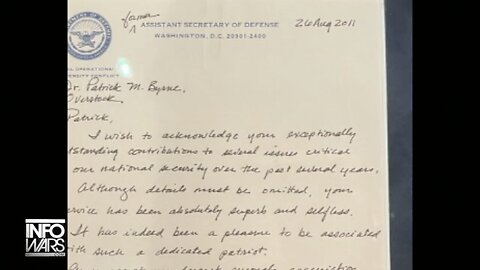 former
^ ASSISTANT SECRETARY OF DEFENSE
WASHINGTON, D.C. 20301-2400
26 Aug 2011
AL OPERATION
ERSITY CONFLICT
Dr. Patrick M. Byrne,
Overstock
Patrick,
I wish to acknowledge your exceptionally
tstanding contributions to several issues critical
our national security over the past several years.
Although details must be omitted, your
rvice has been absolutely superb and selfless.
It has indeed been a pleasure to be associated
ith such a dedicated patriot.
INFO
WARS